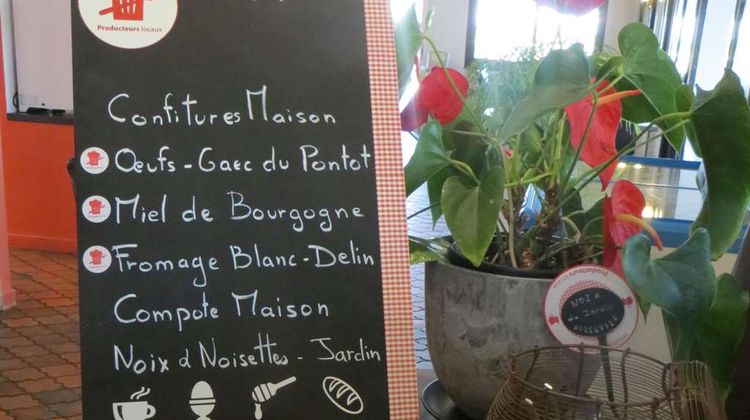 Producteurs locaux
Confitures Maison
Œufs - Gaec du Pontot
Miel de Bourgogne
Fromage Blanc - Delin
Compote Maison
Noix & Noisettes - Jardin
NOIX
du Jardin